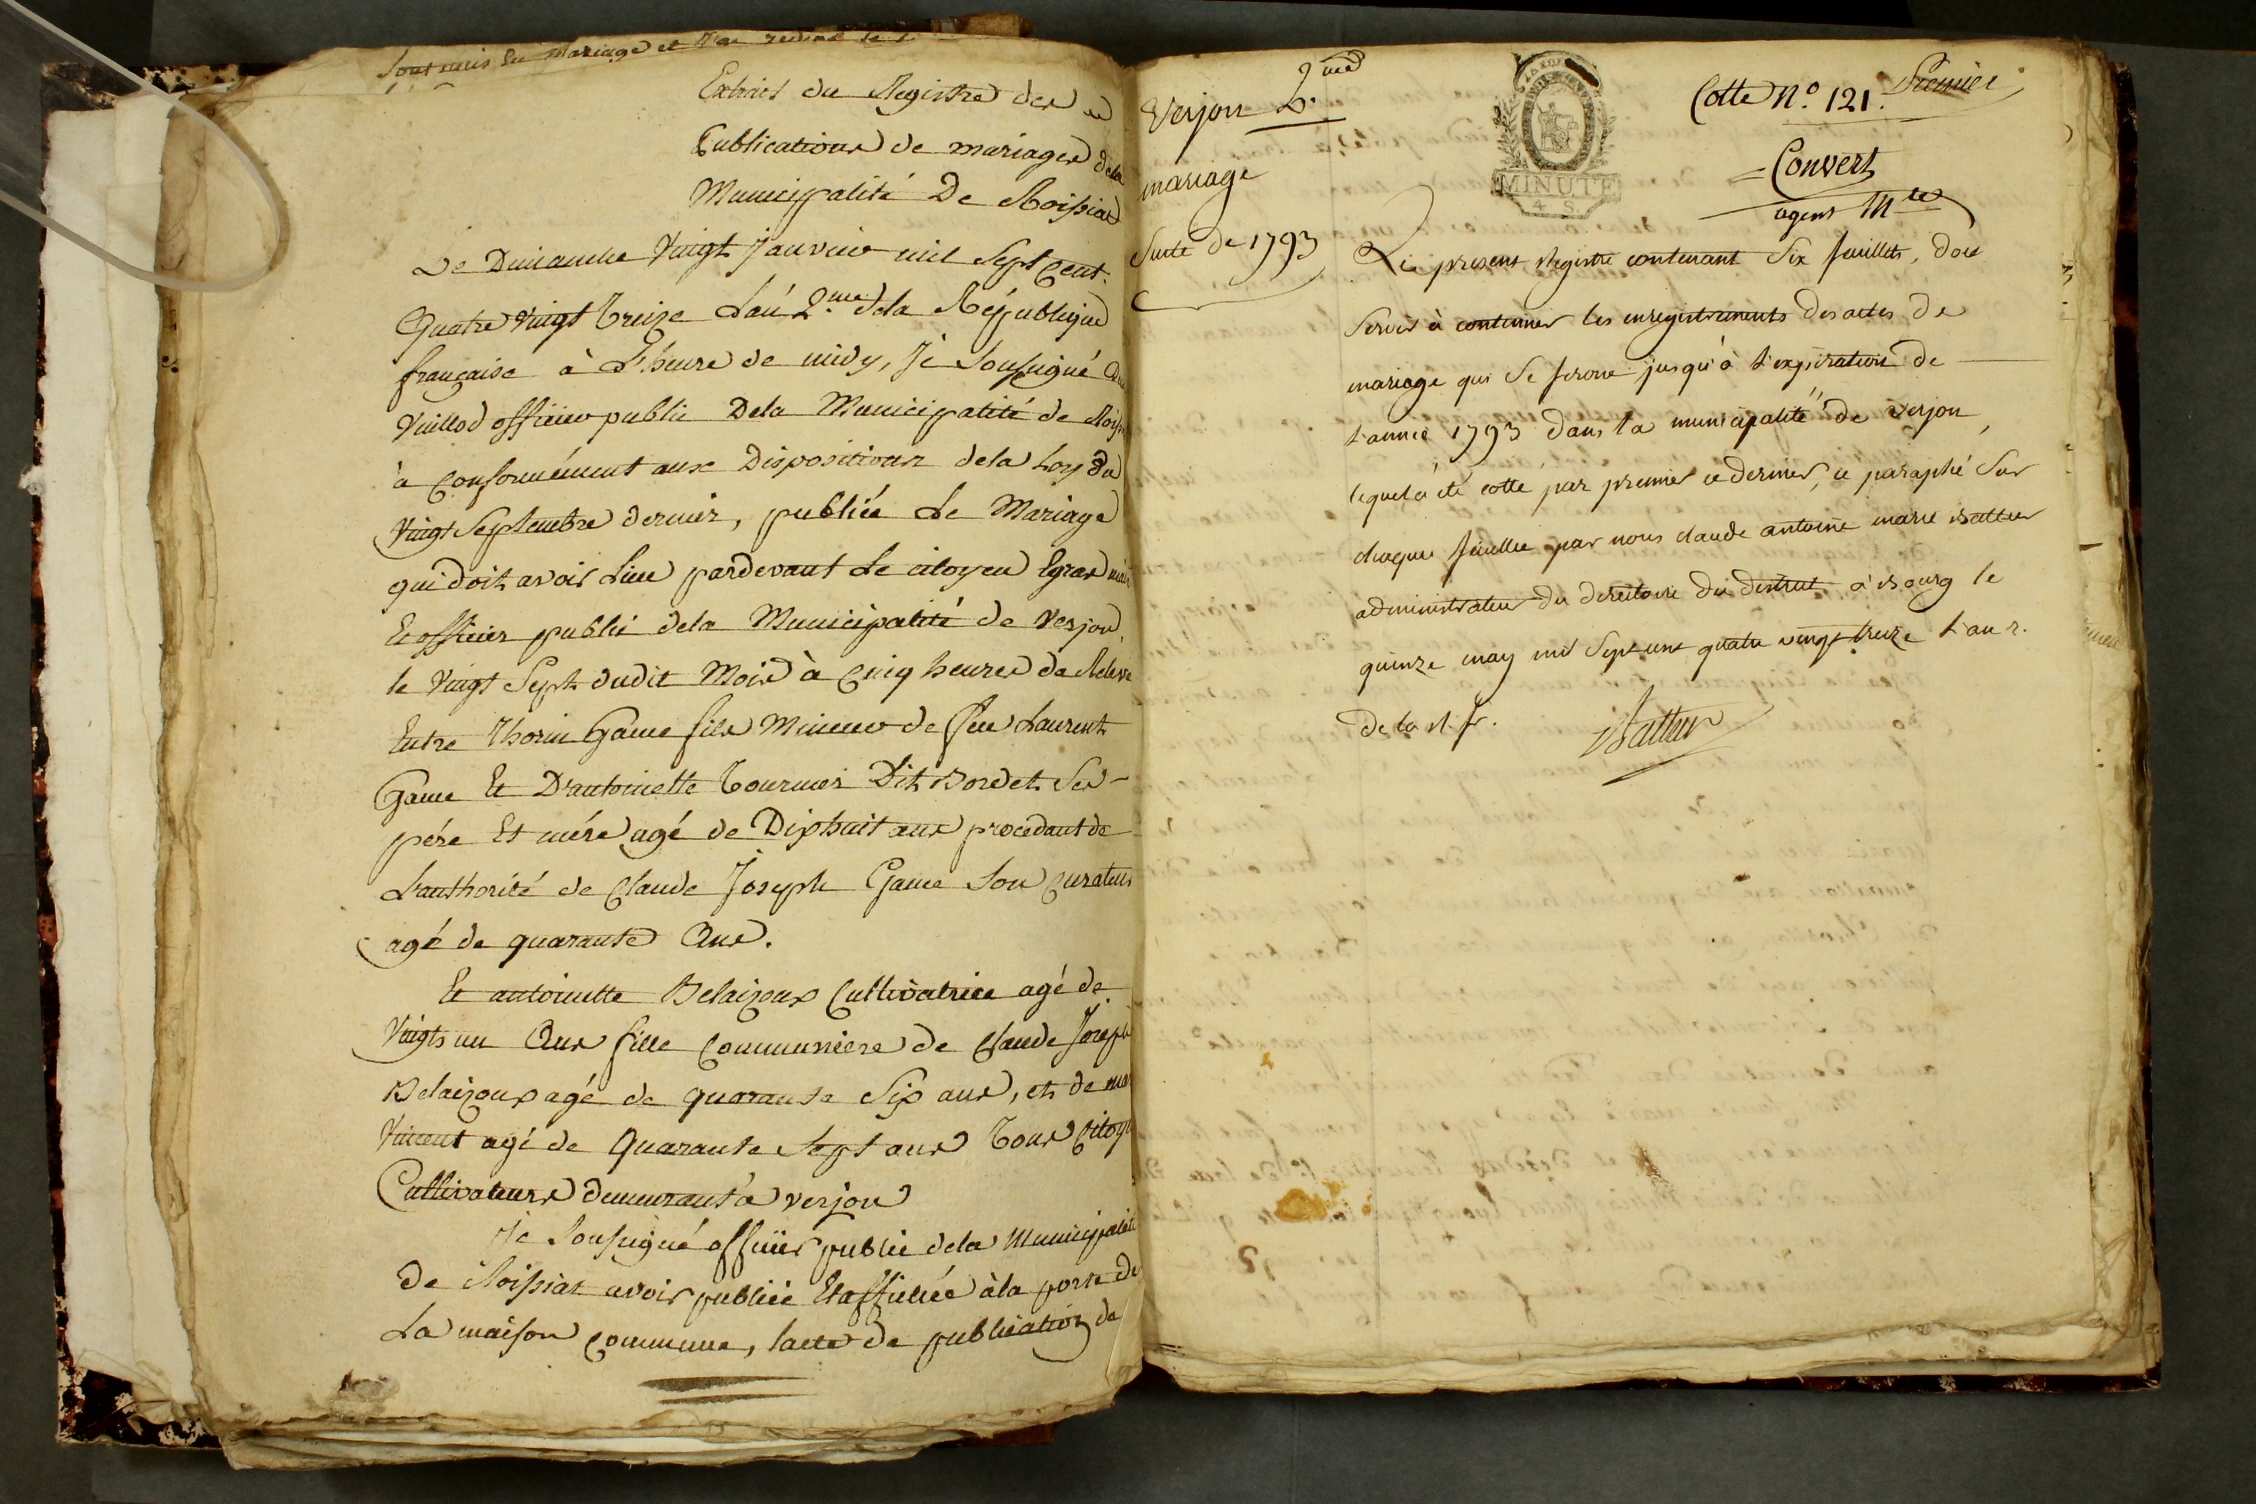 Extrait du Registre des
Publications de mariages dela
Municipalité De Roissiat
Le Dimanche Vingt Janvier mil Sept Cent
Quatre Vingt Treize L'an 2.me dela République
française à L'heure de midy, Je Soussigné
Vuillod officier public Dela Municipalité de
à Conformément aux Dispositions dela Loy du
Vingt Septembre dernier, publiée Le Mariage
qui doit avoir Lieu pardevant Le citoyen
Et officier public dela Municipalité de Verjon
le Vingt Sept dudit Mois à Cinq heures de
Entre Thorin Game fils Mineur de feu Laurent
Game Et D'antoinette Tournier Dit Bordet Ses
père Et mère agé de Dixhuit ans procedant de
L'authorité de Claude Joseph Game Son Curateur
agé de quarante Ans.
Et antoinette Belaizoux Cultivatrice agé de
Vingts un Ans fille Communiere de Claude Joseph
Belaizoux agé de quarante Six ans, et de
Vincent agé de Quarante Sept ans Tous
Cultivateurs demeurant à verjon
Je Soussigné officier public dela Municipalité
De Roissiat avoir publiée Et affichée à la porte de
La maison Commune, lacte de publication de
Verjon 2.me
mariage
Suite de 1793
MINUTE
4 S.
Cotte N.o 121. Premier
Convert
agent M
Le present Registre contenant Six feuillets, doit
Servir à contenir les enregistrements des actes de
mariage qui Se feront jusqu'à l'expiration de
l'année 1793 dans la municipalité de verjon,
lequel a été cotté par premier et dernier, et paraphé Sur
chaque feuillet par nous claude antoine marie Battur
administrateur du directoire du district à Bourg le
quinze may mil Sept cent quatre vingt treize l'an 2.
de la R. fr.
Battur